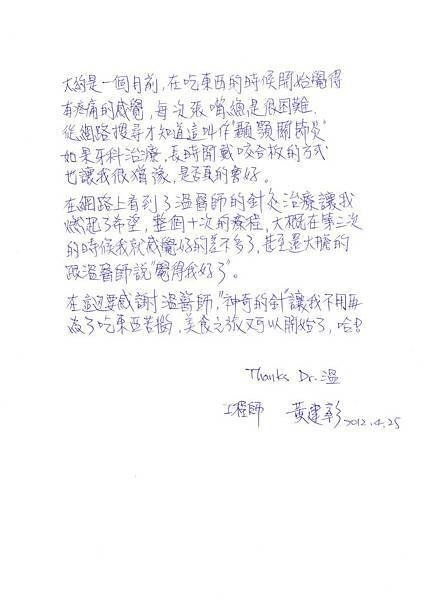 大約是一個月前，在吃東西的時候開始覺得
有疼痛的感覺，每次張嘴總是很困難．
從網路搜尋才知道這叫作"顳顎關節炎"
如果牙科治療，長時間戴咬合板的方式
也讓我很猶豫，是否真的會好。
在網路上看到了溫醫師的針灸治療讓我
燃起了希望，整個十次的療程，大概在第三次
的時候我就感覺好的差不多了，甚至還大膽的
跟溫醫師說"覺得我好了"。
在這邊要感謝溫醫師，"神奇的針"讓我不用再
為了吃東西苦惱，美食之旅又可以開始了，哈!!
Thanks Dr.溫
工程師 黃建彰 2012.4.25